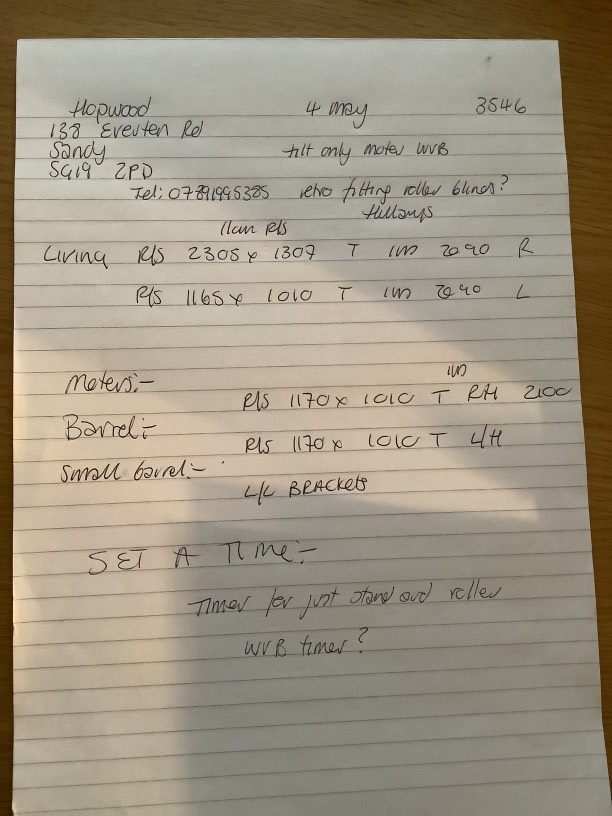 Hopwood 4 May 3546
138 Everten Rd
Sandy tilt only moter WVB
SG19 2PD
Tel: 07891995385 retro fitting roller blinds?
Hillarys
R/s
Living R/s 2305 x 1307 T 1m R
R/s 1165 x 1010 T 1m L
Moters:-
1m
R/s 1170 x 1010 T RH 2100
Barrel:-
R/s 1170 x 1010 T L/H
Small barrel:-
L/L BRACKets
SET A TIMe:-
Timer for just standard roller
WVB timer?